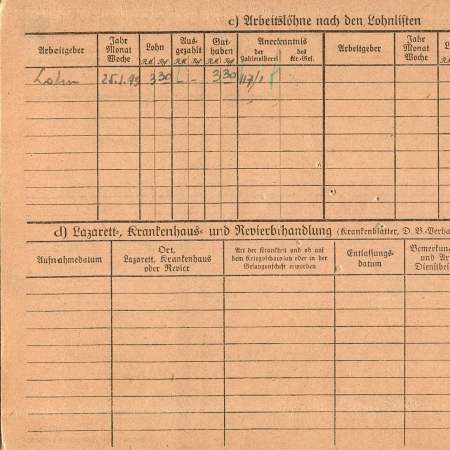 c) Arbeitslöhne nach den Lohnlisten
Arbeitgeber
Jahr
Monat
Woche
Lohn
R.M. Rpf
Aus-
gezahlt
R.M. Rpf
Gut-
haben
R.M. Rpf
Anerkenntnis
der
Zahlmeisterei
des
Kr.-Gef.
Arbeitgeber
Jahr
Monat
Woche
L
Lohn 25.1.43 3 30 - - 3 30 117/1
d) Lazarett-, Krankenhaus- und Revierbehandlung (Krankenblätter, D. B.-Verha
Aufnahmedatum
Ort,
Lazarett, Krankenhaus
oder Revier
Art der Krankheit und ob auf
dem Kriegsschauplatz oder in der
Gefangenschaft erworben
Entlassungs-
datum
Bemerkung
und Ar
Dienstbe